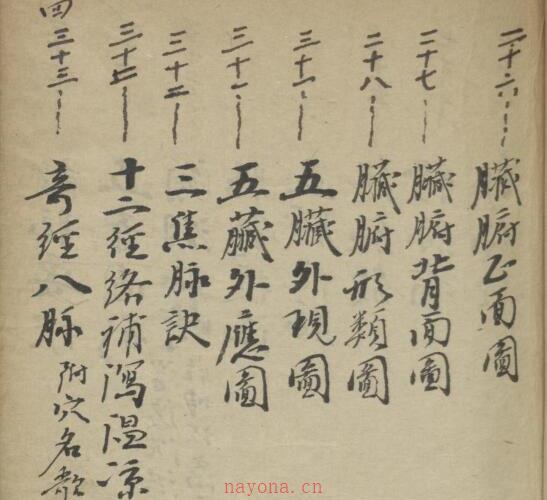 二十六 臟腑正面圖
二十七 臟腑背面圖
二十八 臟腑形類圖
三十一 五臟外現圖
三十一 五臟外應圖
三十二 三焦脉訣
三十七 十二經絡補瀉温凉
四三十三 奇經八脉 附穴名歌
nayona.cn